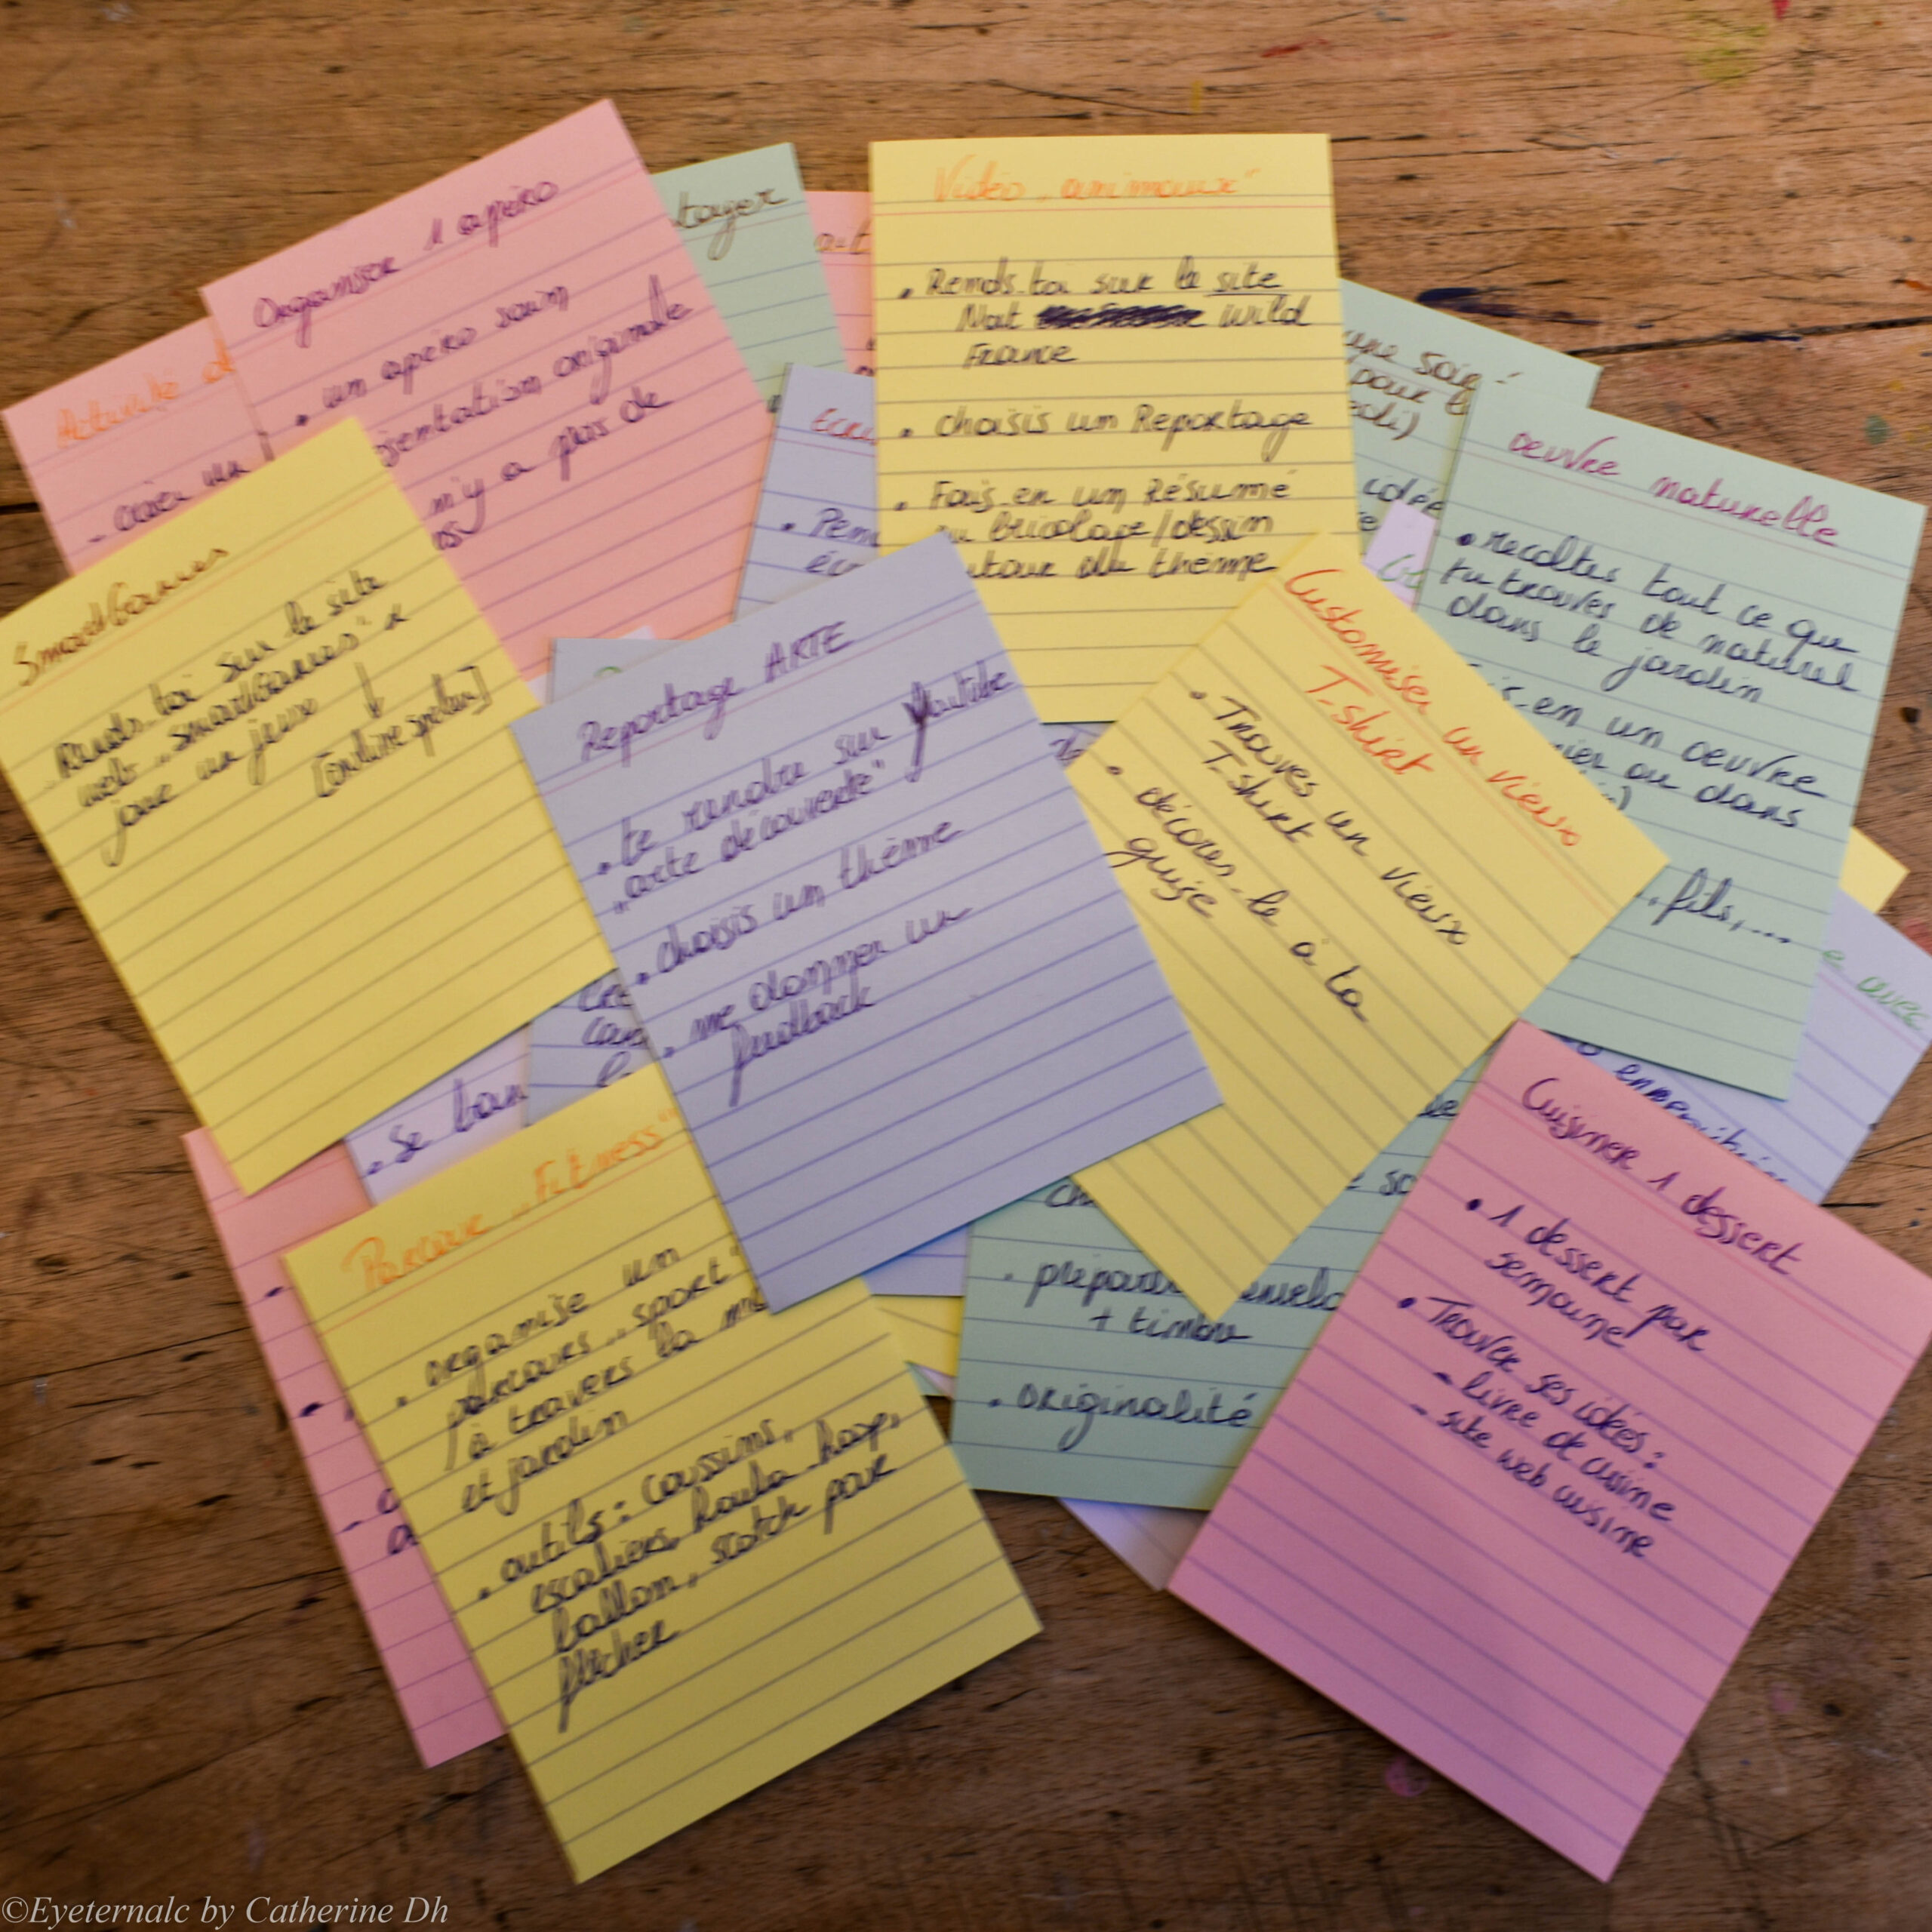 Organiser 1 apéro
• un apéro sain
sentation originale
n'y a pas de
tager
Vidéo "animaux"
• Rends-toi sur le site
Nat wild
France
• choisis un Reportage
• Fais-en un Résumé
bricolage/dessin
autour du thème
une soir
pour
idée
oeuvre naturelle
• recoltes tout ce que
tu trouves de naturel
dans le jardin
-en un oeuvre
ou dans
fils,...
Activité
SmartGames
Rends-toi sur le site
web "SmartGames" &
joue un jeux ↓
Reportage ARTE
• te rendre sur Youtube
"arte découverte"
• choisis un thème
• me donner un
feedback
Customiser un vieux
T-shirt
• Trouves un vieux
T-shirt
• décores-le à ta
guise
• se
Parcour "Fitness"
• organise un
parcours "sport"
à travers la
et jardin
• outils: coussins,
escaliers, houla-hoop,
ballon, scotch pour
flécher
+ timbre
• originalité
avec
Cuisiner 1 dessert
• 1 dessert par
semaine
• Trouver ses idées:
- livre de cuisine
- site web cuisine
©Eyeternalc by Catherine Dh